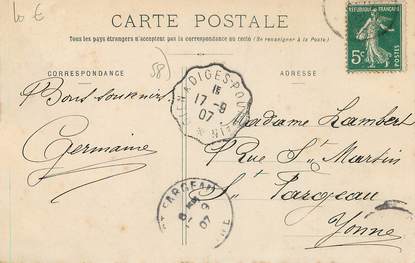 10 €
CARTE POSTALE
Tous les pays étrangers n'acceptent pas la correspondance au recto (Se renseigner à la Poste)
REPUBLIQUE FRANÇAISE
5c
58)
CORRESPONDANCE
ADRESSE
15
17-9
07
Bons souvenirs
Germaine
Madame Lambert
Rue St Martin
St Fargeau
Yonne
ST FARGEAU
07